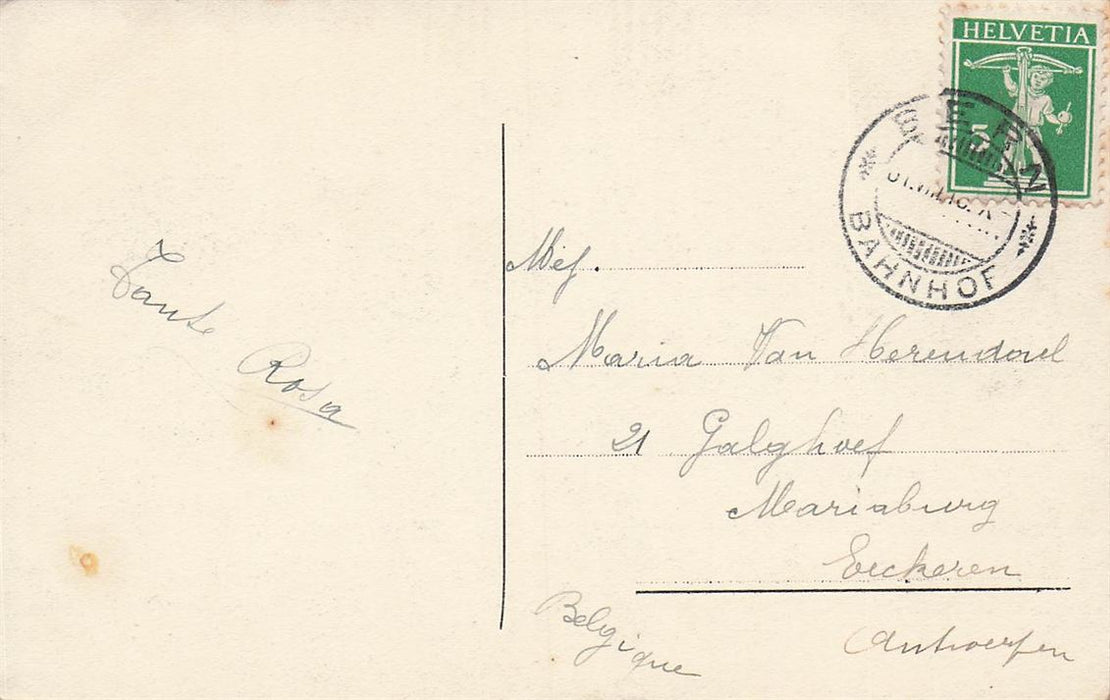 HELVETIA
5
BERN
BAHNHOF
Tante
Rosa
Mej.
Maria Van
21 Galghoef
Mariaburg
Eeckeren
Antwerpen
Belgique